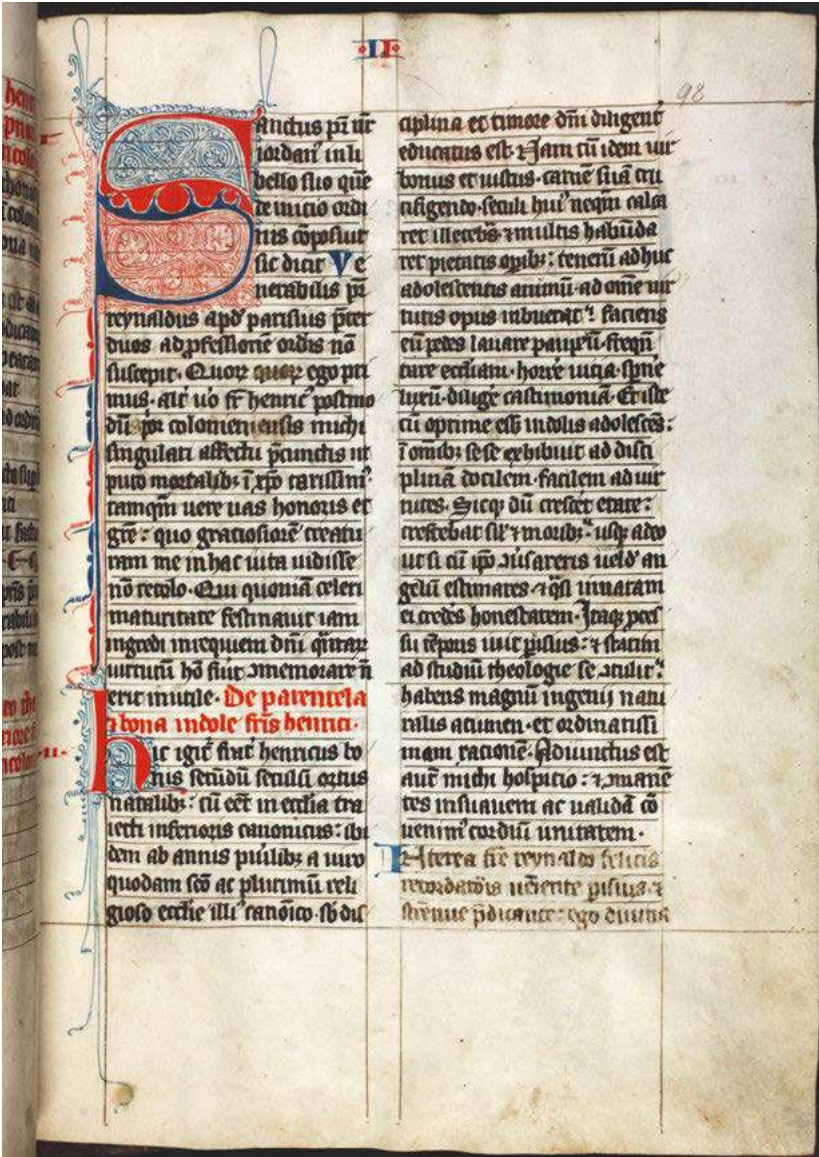 ·II·
98
Sanctus pr̄ nr̄
iordan' in li
bello suo quē
de inicio ordi
nis cōposuit
sic dicit Ve
nerabilis pr̄
reynaldus apd' parisius pret̄
duos ad ꝓfessionē ordīs nō
suscepit. Quoꝝ ego pri
mus. alt' u'o fr̄ henric' postmo
dū p'or coloniensis michi
singulari affectu p̄ cunctis ut
puto mortalibꝫ ī xp̄o carissim'.
tamqm̄ uere uas honoris et
gr̄e: quo graciosiorē creatu
ram me in hac uita uidisse
nō recolo. Qui quoniā celeri
maturitate festinauit iam
ingredi in requiem dn̄i
uirtutū 9memorare n̄
erit inutile. De parentela
⁊ bona indole fr̄is henrici.
·II·
Hic igit' frat' henricus bo
nis secūdū seculū ortus
natalibꝫ: cū eēt in ecclīa tra
iecti inferioris canonicus: ibi
dem ab annis puilibꝫ a uiro
quodam scō ac plurimū reli
gioso eccl'ie illi' canōico. sb' dis
ciplina et timore dn̄i diligent'
educatus est. Nam cū idem uir
bonus et iustus. carnē suā cru
cifigendo. seculi hui' neqm̄ calca
ret illecebs' ⁊ multis habūda
ret pietatis opibꝫ: tenerū adhuc
adolescentis animū. ad omne uir
tutis opus inbuerat: faciens
eū pedes lauare paupum. freqn̄
tare eccl'iam. horre' uicia. sꝑne'
luxū. dilig'e castimoniā. Et iste
cū optime ess' indolis adolesces:
ī omībꝫ sese exhibuit ad disci
plinā docilem. facilem ad uir
tutes. Sicqꝫ dū cresc'et etate:
crescebat sil' ⁊ moribꝫ: usqꝫ adeo
ut si cū ip̄o 9u'sareris uel d' an
gelū estimares. ⁊ q̄si innatam
ei credēs honestatem. Itaqꝫ pcess
su tēporis uēit pisius: ⁊ statim
ad studiū theologie se 9tulit:
habens magnū ingenij natu
ralis acumen. et ordinatissi
mam racionē. Adiunctus est
autē michi hospicio: ⁊ 9manē
tes in suauem ac ualidā cō
uenim' cordiū unitatem.
Interea fr̄e reynaldo felicis
recordatōis ueniente pisius. ⁊
strenue p̄dicante: ego diuina